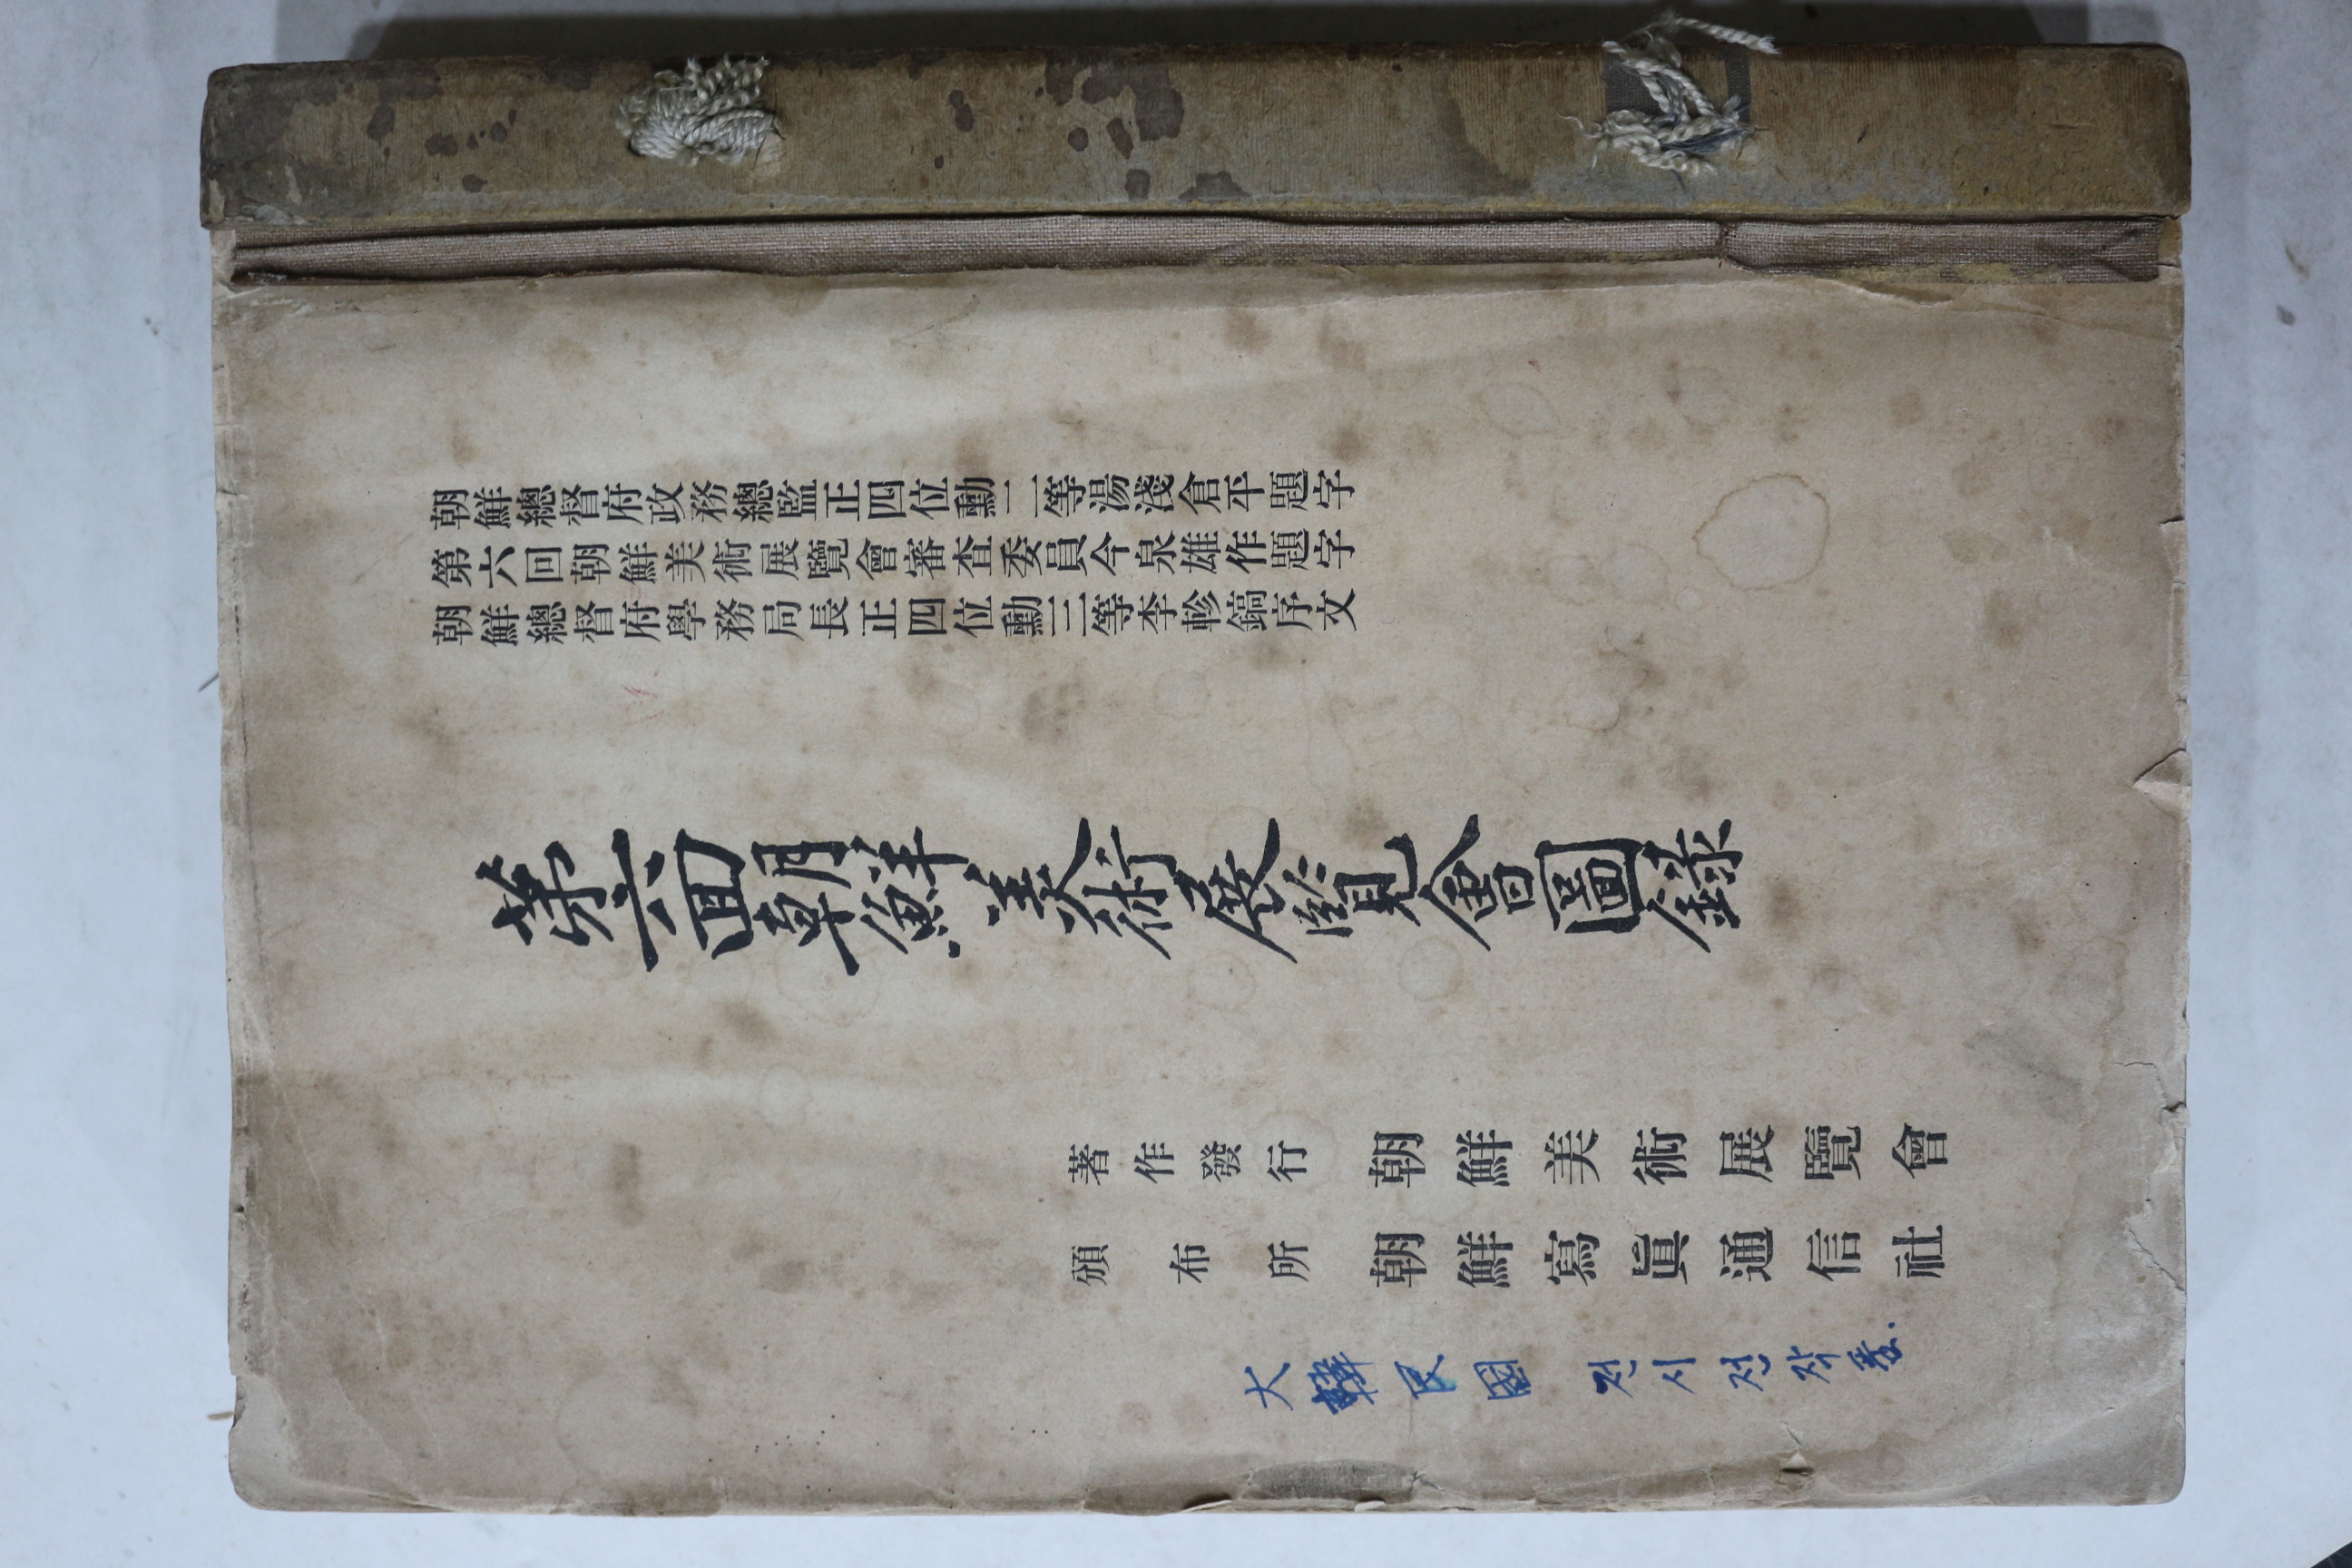 朝鮮總督府政務總監正四位勳二等湯淺倉平題字
第六回朝鮮美術展覽會審査委員今泉雄作題字
朝鮮總督府學務局長正四位勳三等李軫鎬序文
第六回朝鮮美術展覽會圖錄
著作發行 朝鮮美術展覽會
頒布所 朝鮮寫眞通信社
大韓民國 전시전작품.